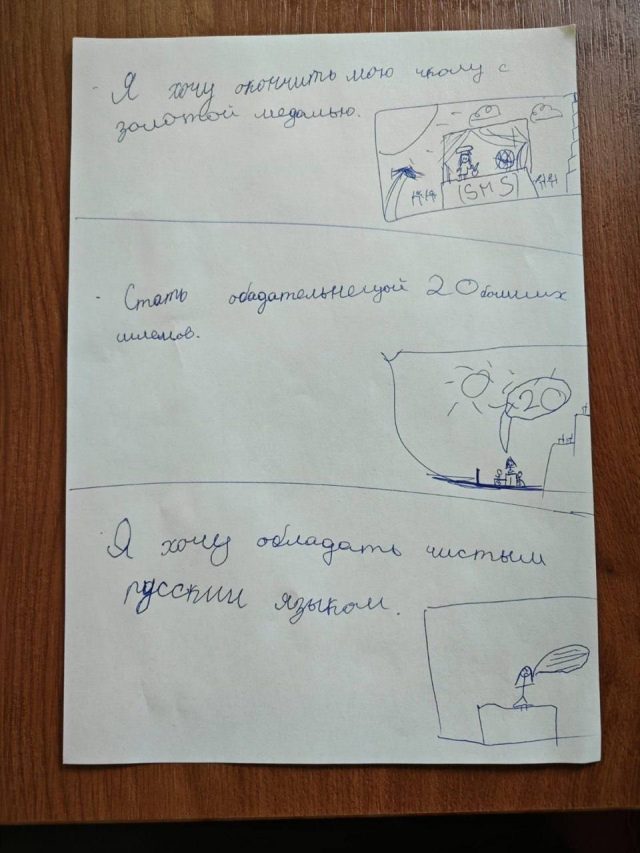 Я хочу окончить мою школу с
золотой медалью.
(SMS)
Стать обадательнецой 20 больших
шлемов.
20
Я хочу обладать чистым
русский языком.